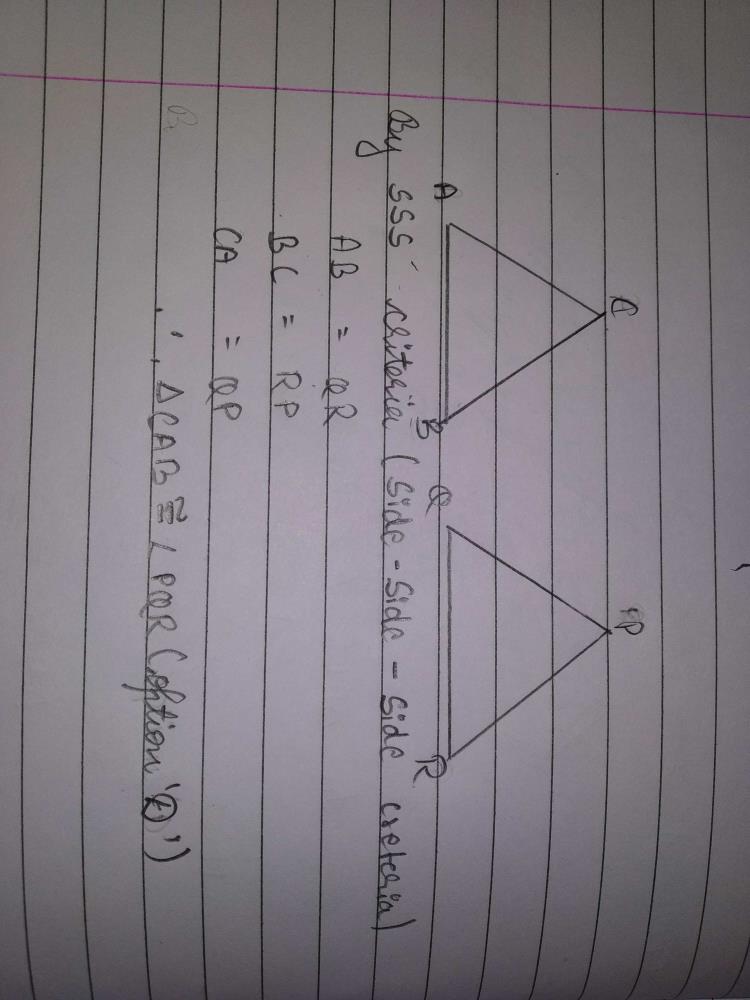 C
P
A
B
Q
R
By SSS criteria (Side-Side-Side creteria)
AB = QR
BC = RP
CA = QP
∴ ΔCAB ≅ ∠PQR (option 'D')